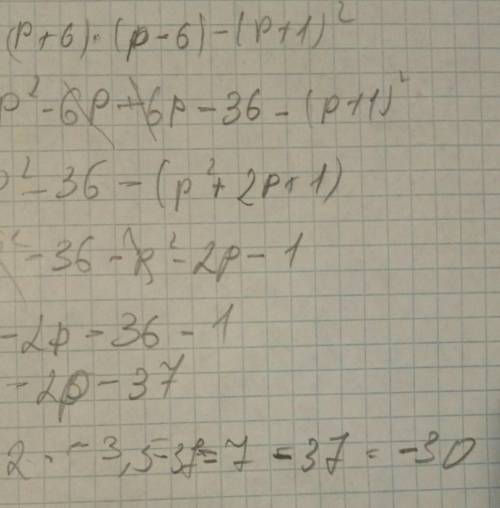 (p+6)·(p-6)-(p+1)²
p²-6p+6p-36-(p+1)²
p²-36-(p²+2p+1)
²-36-p²-2p-1
-2p-36-1
-2p-37
2·-3,5-37=7-37=-30